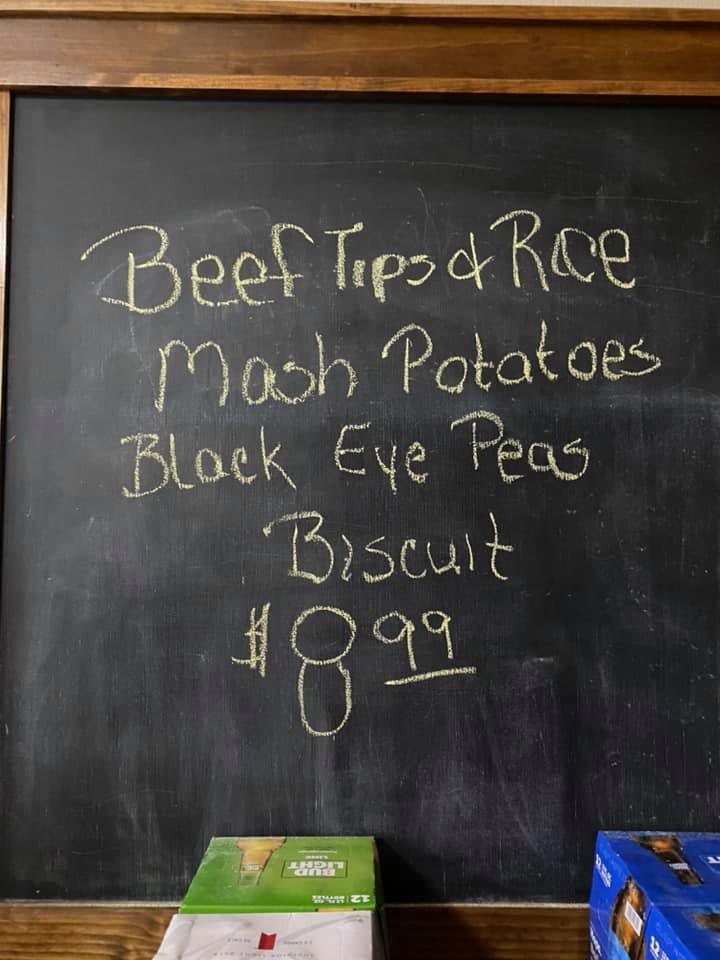 Beef Tips & Rice
Mash Potatoes
Black Eye Peas
Biscuit
$8 99
BUD
LIGHT
LIME
12
12 FL. OZ.
BOTTLES
12